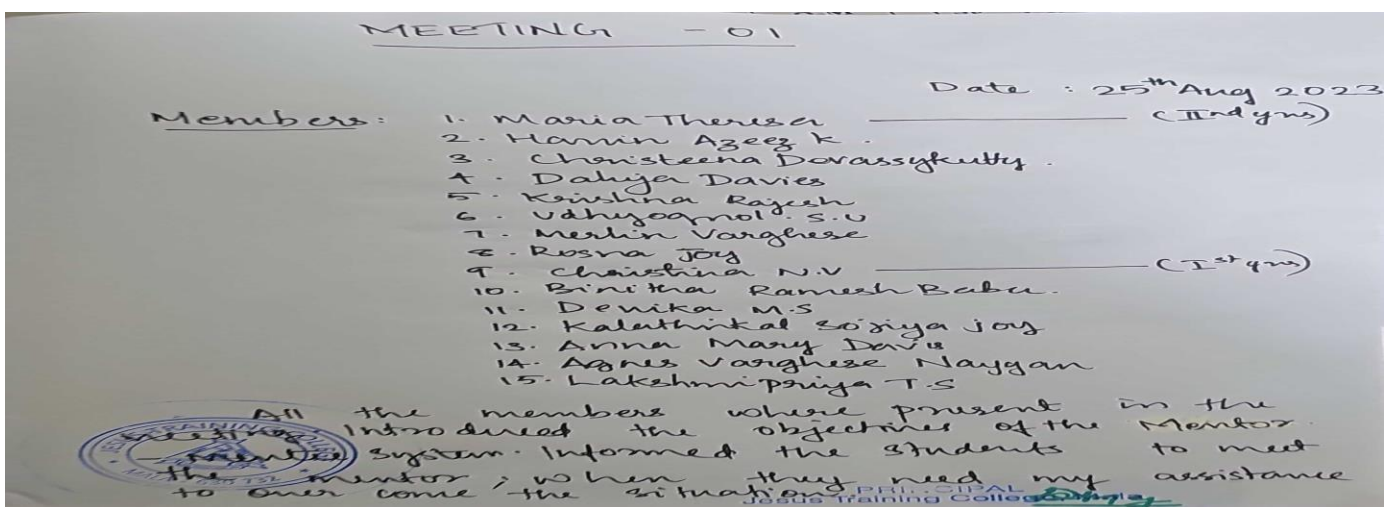 MEETING - 01
Date : 25th Aug 2023
Members: 1. Maria Theresa (IInd yrs)
2. Hannin Azeez K.
3. Christeena Dorassykutty.
4. Dahija Davies
5. Krishna Rajesh
6. Udhyogmol. S.U
7. Merlin Varghese
8. Rosna Joy
9. Christina N.V (Ist yrs)
10. Binitha Ramesh Babu.
11. Denika M.S
12. Kalathinkal Sojiya joy
13. Anna Mary Davis
14. Agnes Varghese Naygan
15. Lakshmipriya T.S
All the members where present in the
meeting. Introduced the objectives of the Mentor
-Mentee system. Informed the students to meet
the mentor, when they need my assistance
to over come the situation.
PRINCIPAL
Jesus Training College